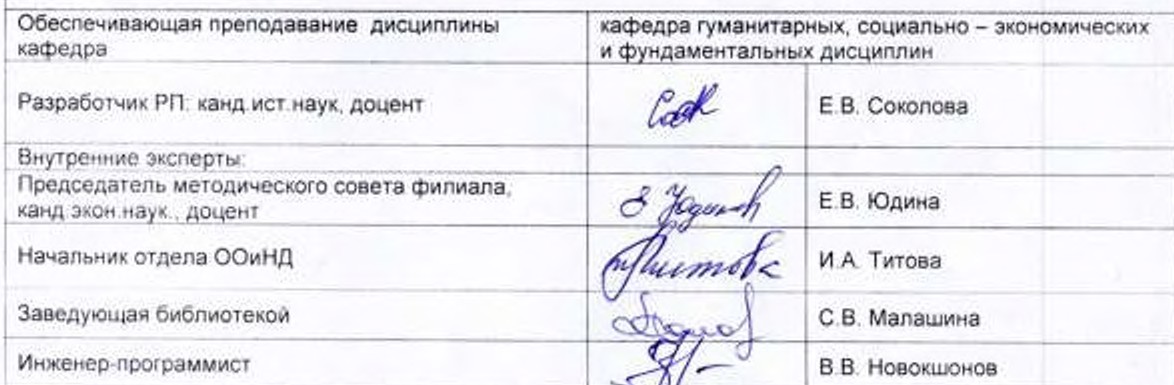 Обеспечивающая преподавание дисциплины
кафедра
кафедра гуманитарных, социально – экономических
и фундаментальных дисциплин
Разработчик РП: канд.ист.наук, доцент
Е.В. Соколова
Внутренние эксперты:
Председатель методического совета филиала,
канд.экон.наук., доцент
Е.В. Юдина
Начальник отдела ООиНД
И.А. Титова
Заведующая библиотекой
С.В. Малашина
Инженер-программист
В.В. Новокшонов